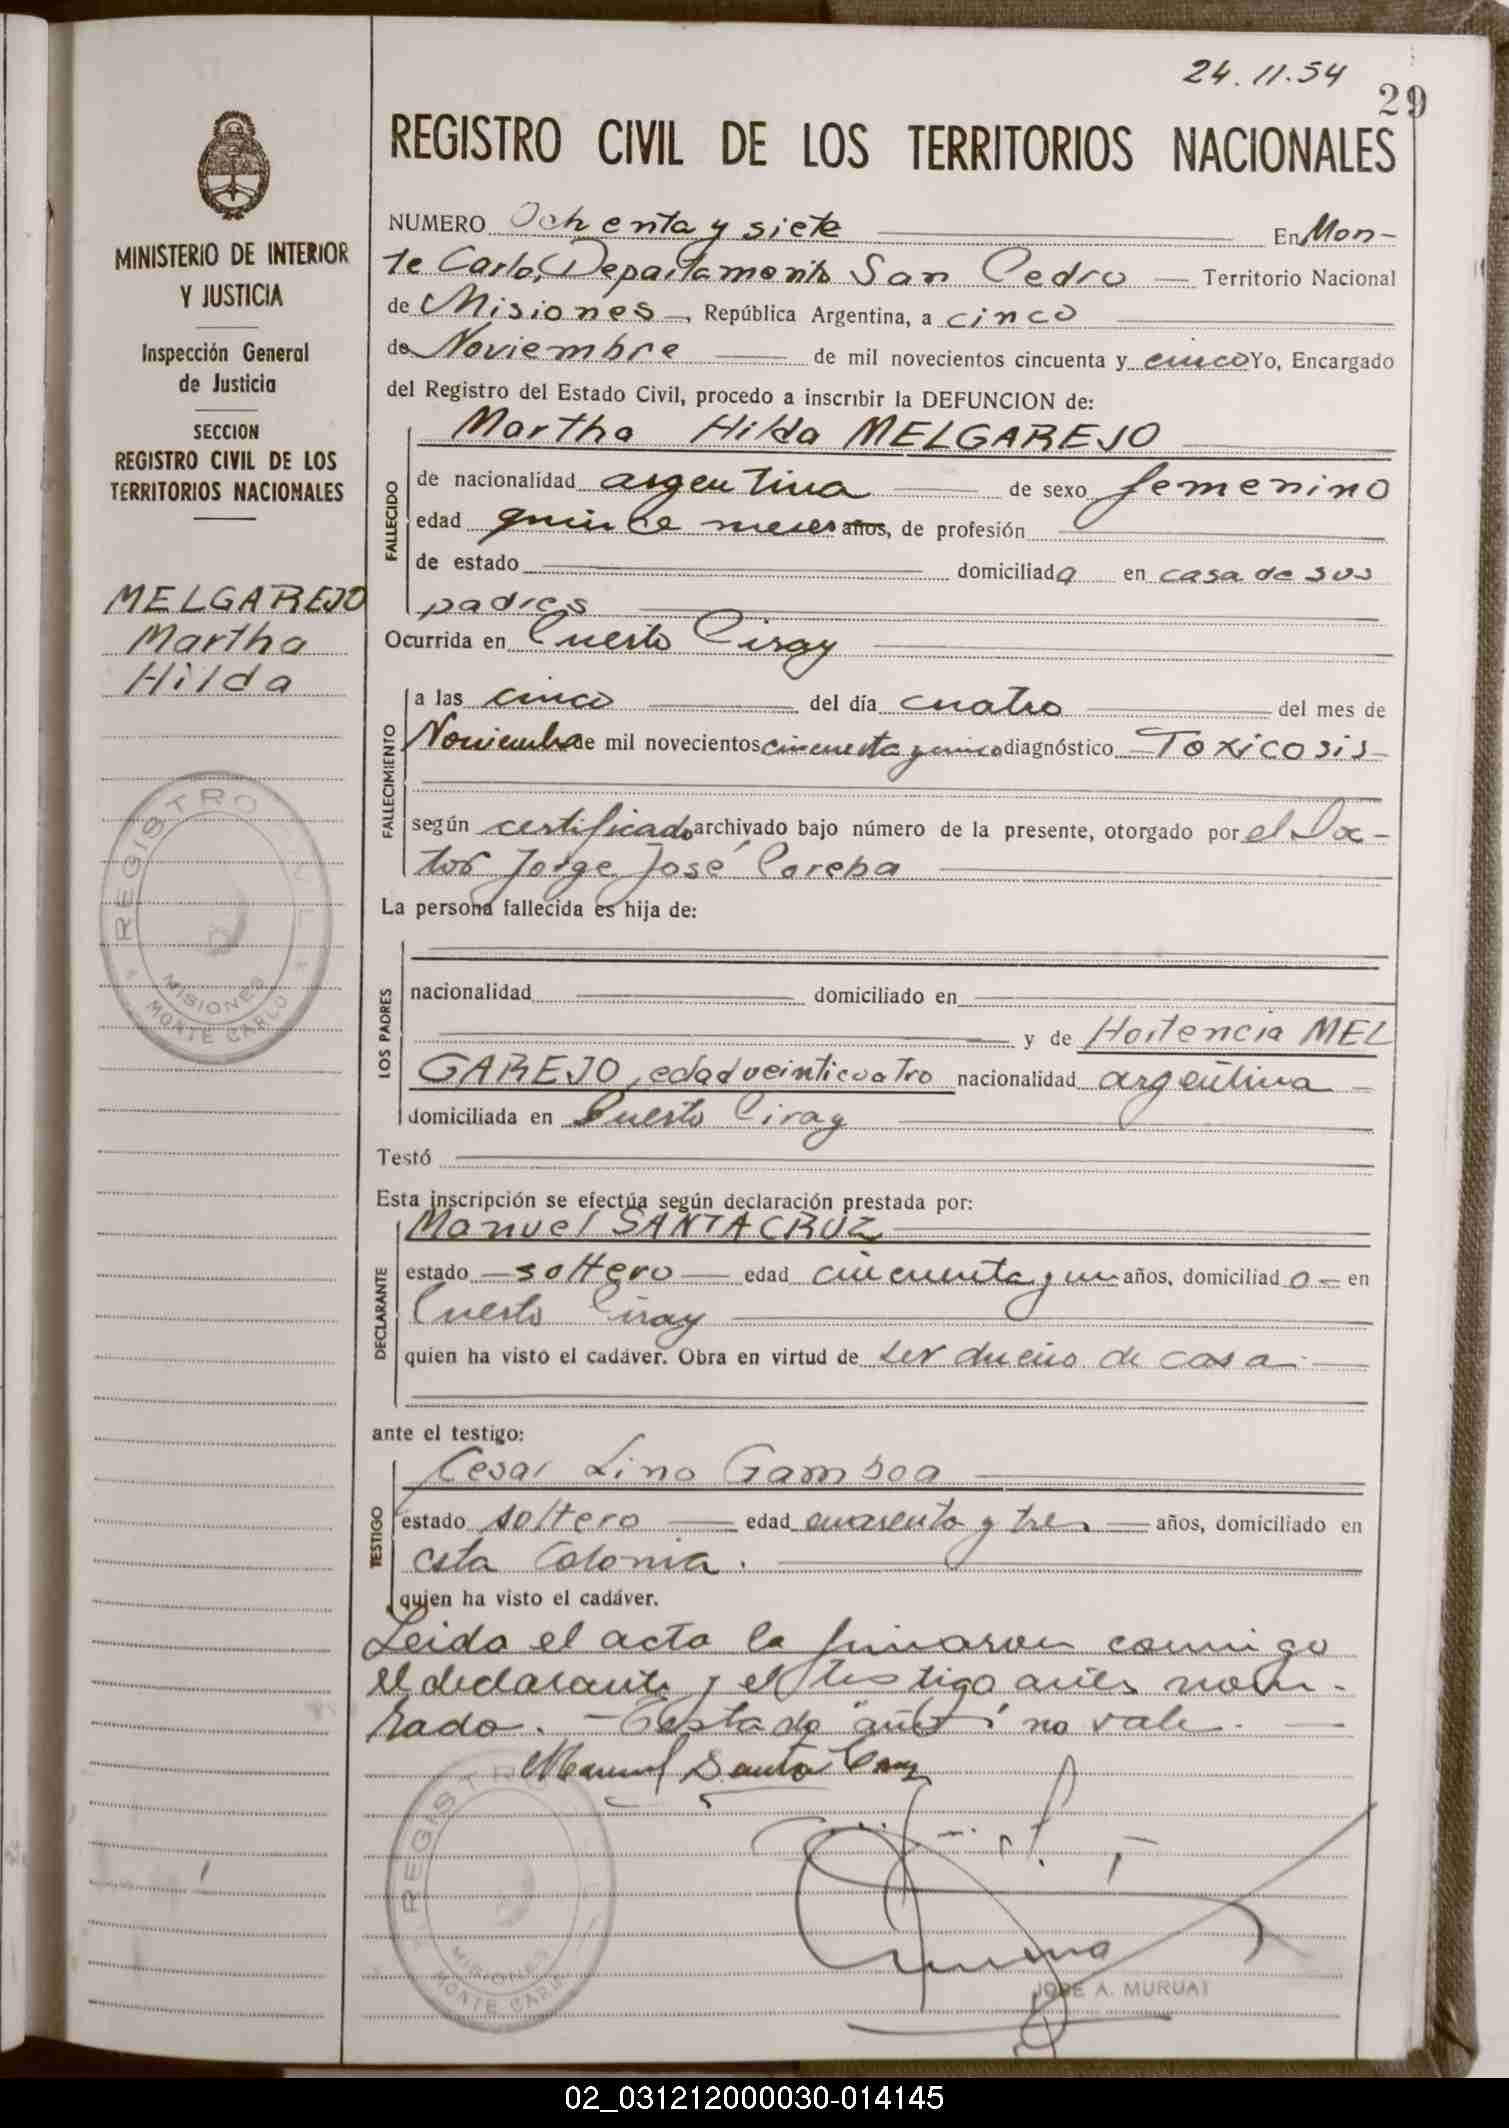 24.11.54
29
REGISTRO CIVIL DE LOS TERRITORIOS NACIONALES
MINISTERIO DE INTERIOR
Y JUSTICIA
Inspección General
de Justicia
SECCION
REGISTRO CIVIL DE LOS
TERRITORIOS NACIONALES
MELGAREJO
Martha
Hilda
REGISTRO CIVIL
MISIONES
MONTE CARLO
NUMERO Ochenta y siete En Mon-
te Carlo, Departamento San Pedro Territorio Nacional
de Misiones, República Argentina, a cinco
de Noviembre de mil novecientos cincuenta y cinco Yo, Encargado
del Registro del Estado Civil, procedo a inscribir la DEFUNCION de:
Martha Hilda MELGAREJO
FALLECIDO
de nacionalidad argentina de sexo femenino
edad quince meses años, de profesión
de estado domiciliada en casa de sus
padres
Ocurrida en Puerto Piray
FALLECIMIENTO
a las cinco del día cuatro del mes de
Noviembre de mil novecientos cincuenta y cinco diagnóstico Toxicosis
según certificado archivado bajo número de la presente, otorgado por el Doc-
tor Jorge José
La persona fallecida es hija de:
LOS PADRES
nacionalidad domiciliado en
y de Hortencia MEL
GAREJO, edad veinticuatro nacionalidad argentina
domiciliada en Puerto Piray
Testó
Esta inscripción se efectúa según declaración prestada por:
DECLARANTE
Manuel SANTACRUZ
estado soltero edad cincuenta y un años, domiciliado en
Puerto Piray
quien ha visto el cadáver. Obra en virtud de ser dueño de casa
ante el testigo:
TESTIGO
Cesar Lino Gamboa
estado soltero edad cuarenta y tres años, domiciliado en
esta Colonia.
quien ha visto el cadáver.
Leida el acta la firmaron conmigo
el declarante y el testigo antes nom-
brado. - Testado "años" no vale.
Manuel Santa Cruz
REGISTRO
MISIONES
MONTE CARLO
JOSE A. MURUAT
02_031212000030-014145